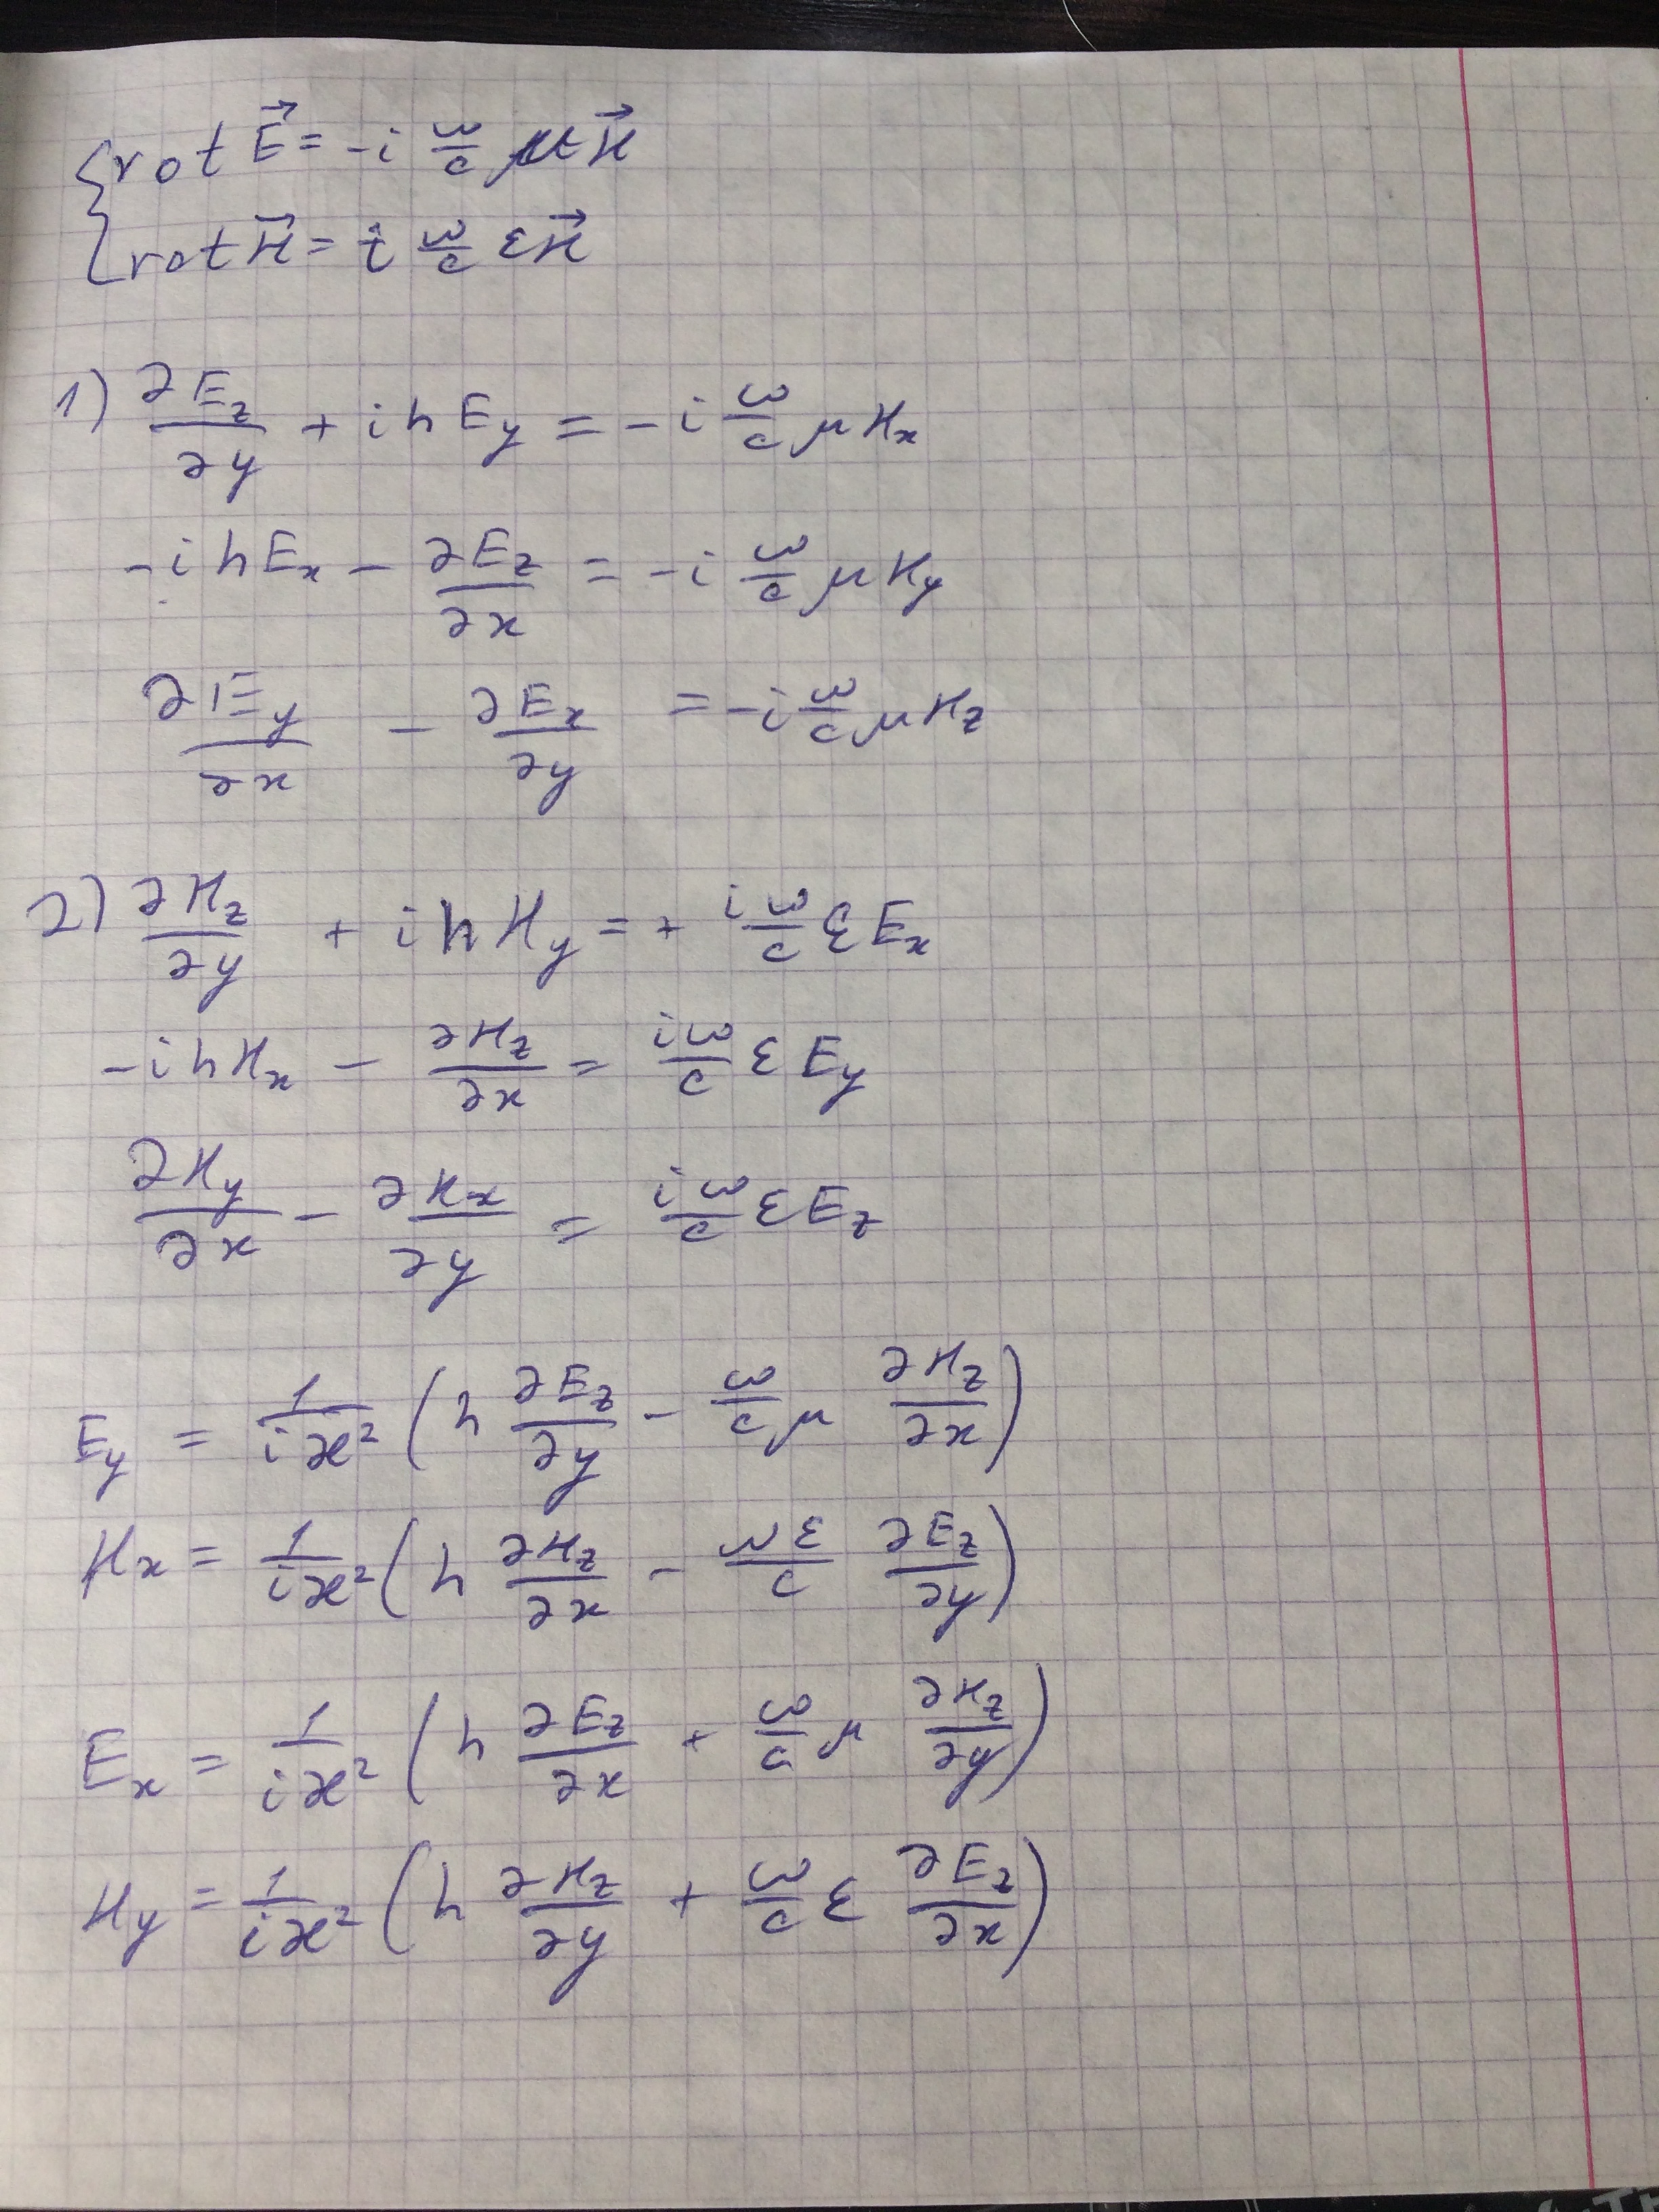 rot E⃗ = -i ω/c μ H⃗
rot H⃗ = i ω/c ε H⃗
1) ∂Ez/∂y + i h Ey = -i ω/c μ Hx
-i h Ex - ∂Ez/∂x = -i ω/c μ Hy
∂Ey/∂x - ∂Ex/∂y = -i ω/c μ Hz
2) ∂Hz/∂y + i h Hy = + iω/c ε Ex
-i h Hx - ∂Hz/∂x = iω/c ε Ey
∂Hy/∂x - ∂Hx/∂y = iω/c ε Ez
Ey = 1/(i æ²) (h ∂Ez/∂y - ω/c μ ∂Hz/∂x)
Hx = 1/(i æ²) (h ∂Hz/∂x - ωε/c ∂Ez/∂y)
Ex = 1/(i æ²) (h ∂Ez/∂x + ω/c μ ∂Hz/∂y)
Hy = 1/(i æ²) (h ∂Hz/∂y + ω/c ε ∂Ez/∂x)